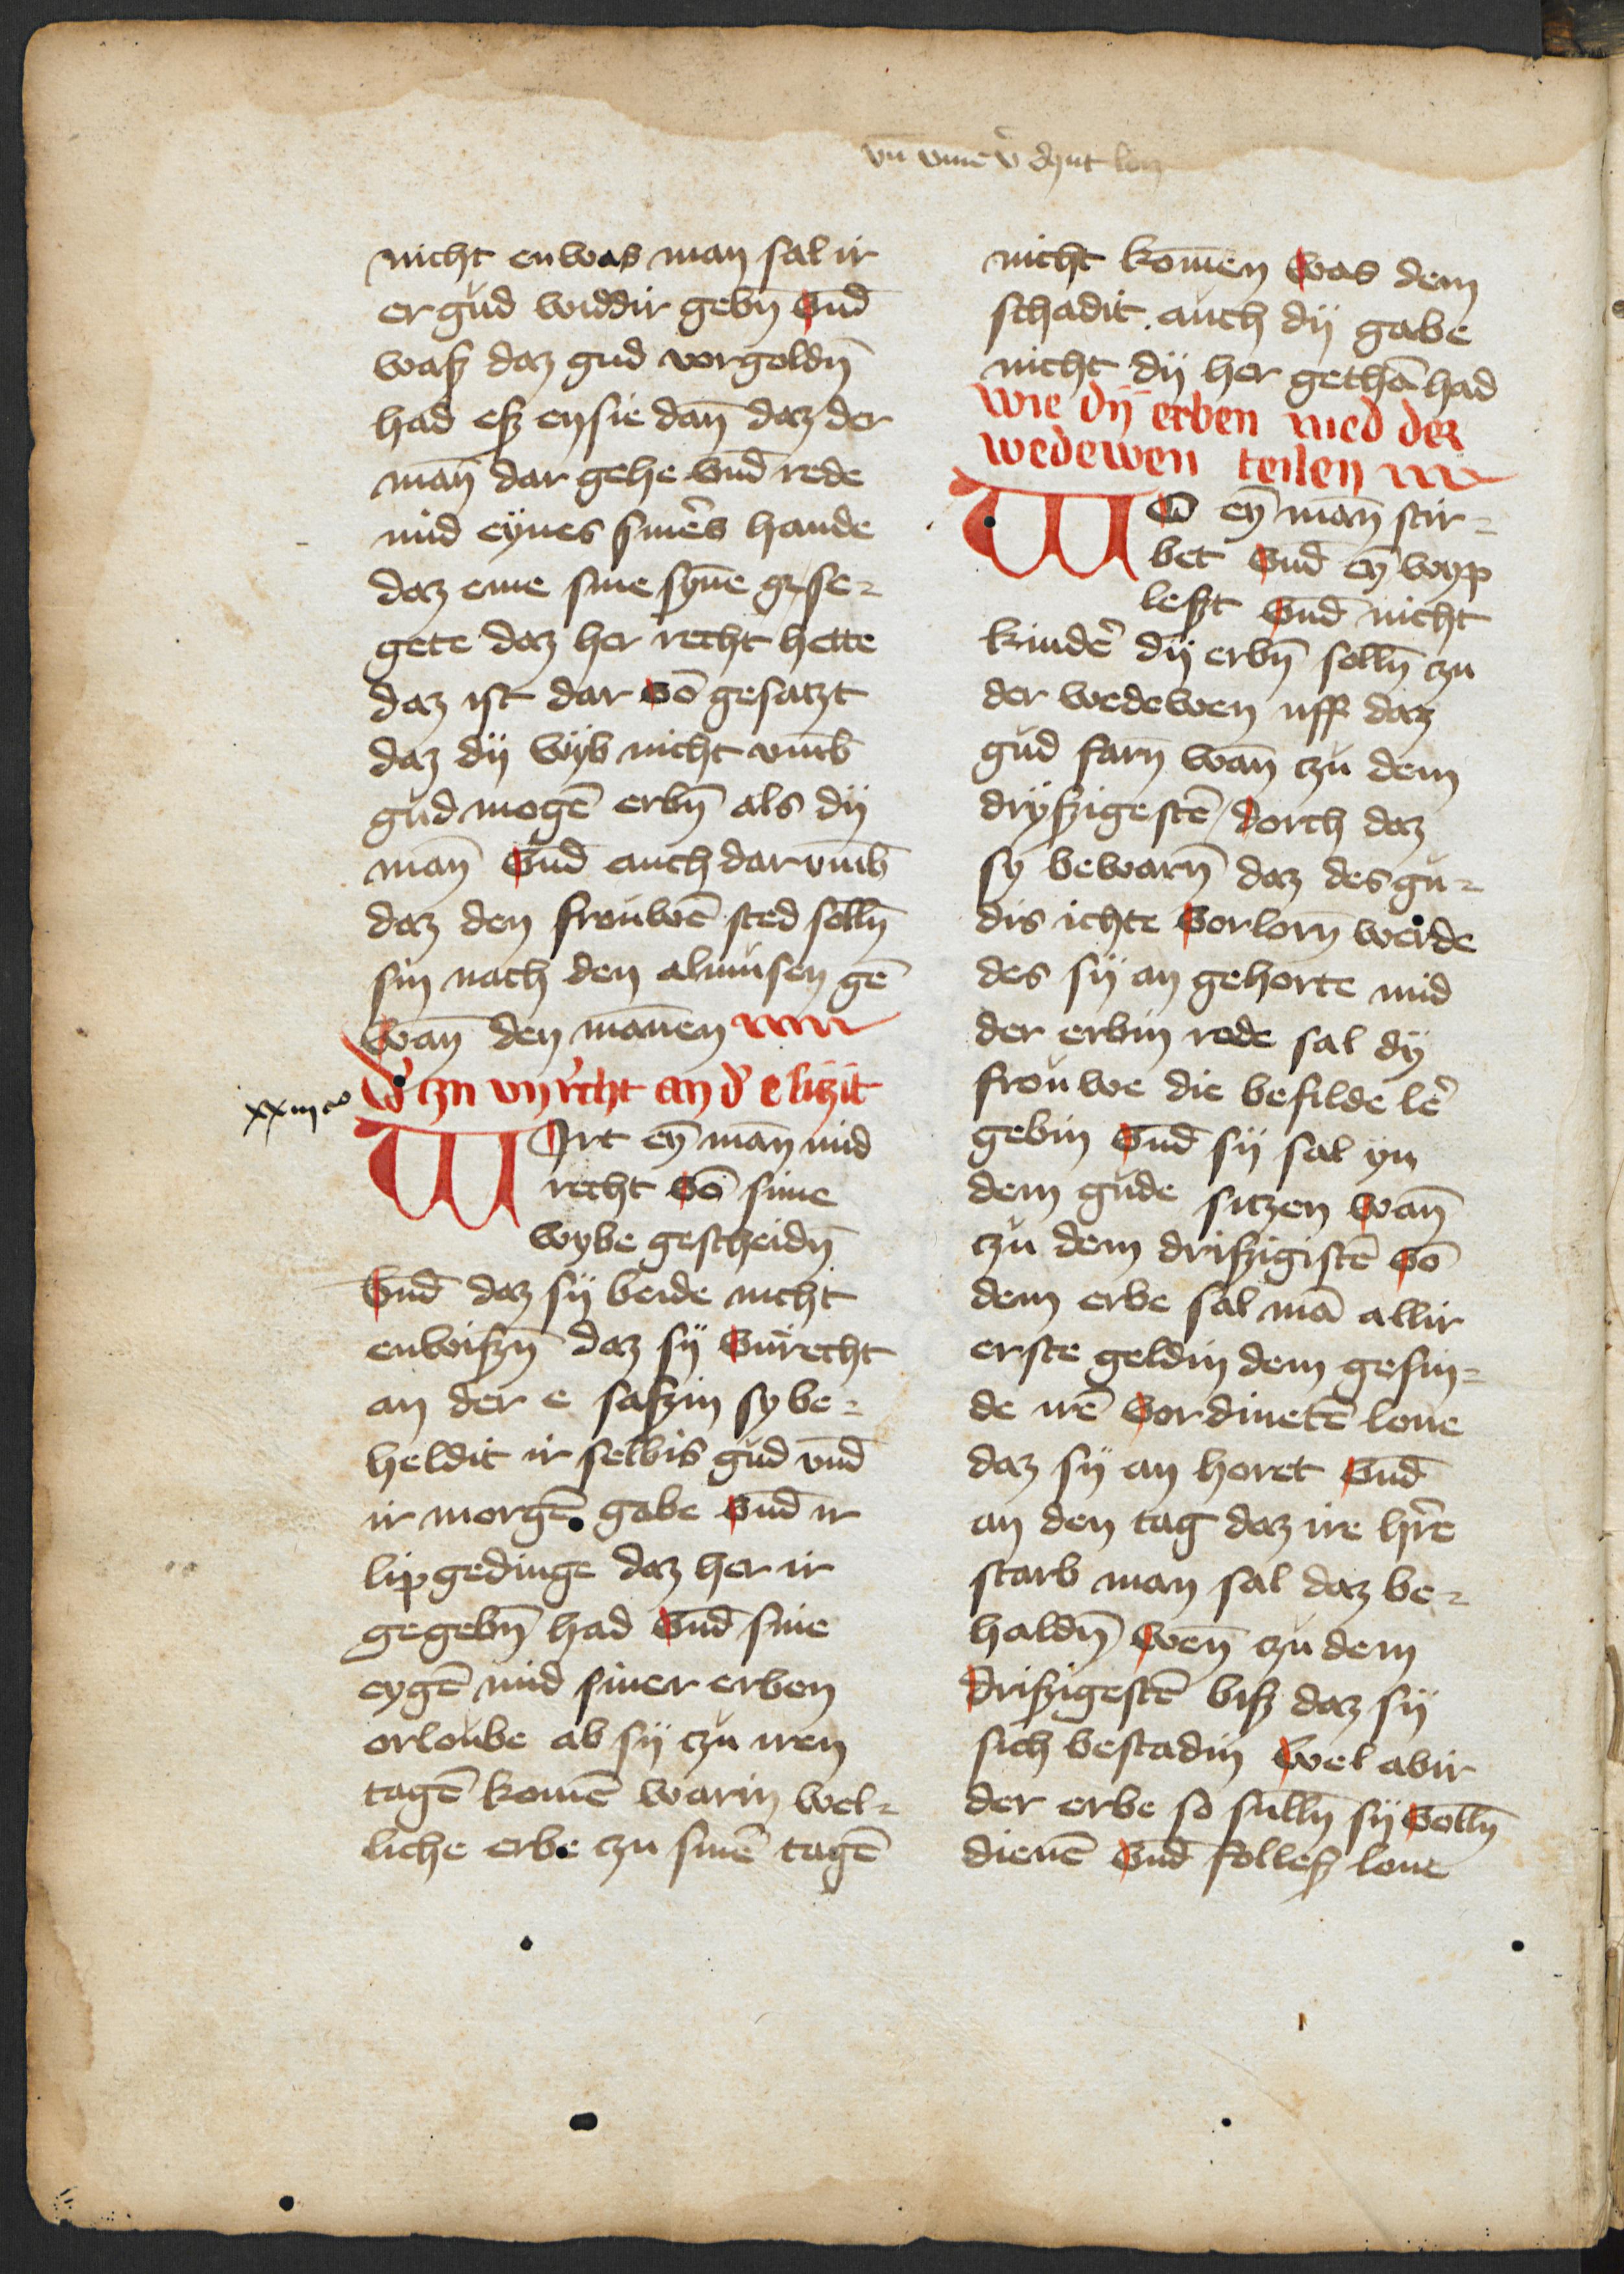 vn̄ vmē v̾ dynt lon
nicht enwas man sal ir
er gud widdir gebn̄ vnd̄
wasz daz gud vorgoldn̄
had esz ensie dan̄ daz der
man̄ dar gehe vnd̄ rede
mid eynes sines hande
daz eme sine syn̄e gese⸗
gete daz her recht hette
daz ist dar vō gesatzt
daz dÿ wyb nicht vmb
gud mogē erbn̄ als dÿ
man̄ vnd̄ auch dar vmb
daz den frouwē sted solln̄
sin nach den almusen gē
wan̄ den man̄en
Der zn vnrecht an d' e sitzit
xxiiii c°
Wirt ey̅ man̄ mid
recht vō sime
wybe gescheidn̄
Vnd̄ daz sÿ beide nicht
enwiszn̄ daz sÿ vnrecht
an der e saszin sy be⸗
heldit ir selbis gud vnd̄
ir morgē gabe vnd̄ ir
lipgedinge daz her ir
gegebn̄ had vnd̄ sine
eygē mid siner erben
orloube ab sÿ czu iren
tagē komē warin wel⸗
liche erbe czu sinē tagē
nicht kom̄en was dem
schadit auch dÿ gabe
nicht dÿ her gethā had
wie dÿ erben med der
wedewen teilen
Wa ey̅ man̄ stir⸗
bet vnd̄ ey̅ wyp
leszt vnd̄ nicht
kinder dÿ erbn̄ solln̄ zu
der wedewen uff daz
gud farn̄ wan̄ czu dem
dryszigestē dorch daz
sy bewarn̄ daz des gu⸗
dis ichte vorlorn̄ werde
des sÿ an gehorte mid
der erbin rede sal dÿ
frouwe die befilde lē
gebin vnd̄ sÿ sal yn
dem gude sitzen wan̄
czu dem driszigistē vō
dem erbe sal mā allir
erste geldin dem gesin⸗
de irē vordinetē lone
daz sÿ an horet vnd̄
an den tag daz ire hr̄e
starb man sal daz be⸗
haldn̄ wen̄ czu dem
driszigestē bisz daz sÿ
sich bestadin wel abir
der erbe so sulln̄ sÿ volln̄
dienē vnd̄ follesz lone